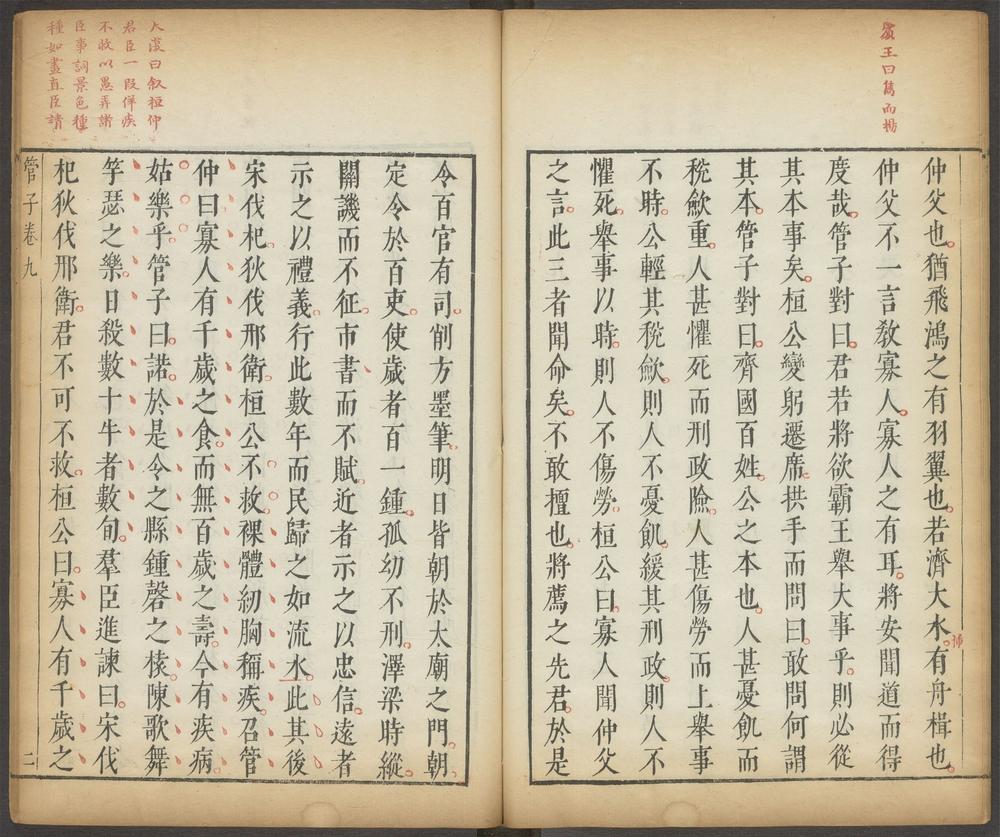 賓王曰雋而揚
仲父也猶飛鴻之有羽翼也若濟大水有舟楫也
仲父不一言敎寡人寡人之有耳將安聞道而得
度哉管子對曰君若將欲霸王舉大事乎則必從
其本事矣桓公變躬遷席拱手而問曰敢問何謂
其本管子對曰齊國百姓公之本也人甚憂飢而
稅斂重人甚懼死而刑政險人甚傷勞而上舉事
不時公輕其稅斂則人不憂飢緩其刑政則人不
懼死舉事以時則人不傷勞桓公曰寡人聞仲父
之言此三者聞命矣不敢擅也將薦之先君於是
大復曰叙桓仲
君臣一段佯疾
不救以愚弄諸
臣事詞景色種
種如畫直臣請
令百官有司削方墨筆明日皆朝於太廟之門朝
定令於百吏使歲者百一鍾孤幼不刑澤梁時縱
關譏而不征市書而不賦近者示之以忠信遠者
示之以禮義行此數年而民歸之如流水此其後
宋伐杞狄伐邢衛桓公不救裸體紉胸稱疾召管
仲曰寡人有千歲之食而無百歲之壽今有疾病
姑樂乎管子曰諾於是令之縣鍾磬之榱陳歌舞
竽瑟之樂日殺數十牛者數旬羣臣進諫曰宋伐
杞狄伐邢衛君不可不救桓公曰寡人有千歲之
管子卷九 二